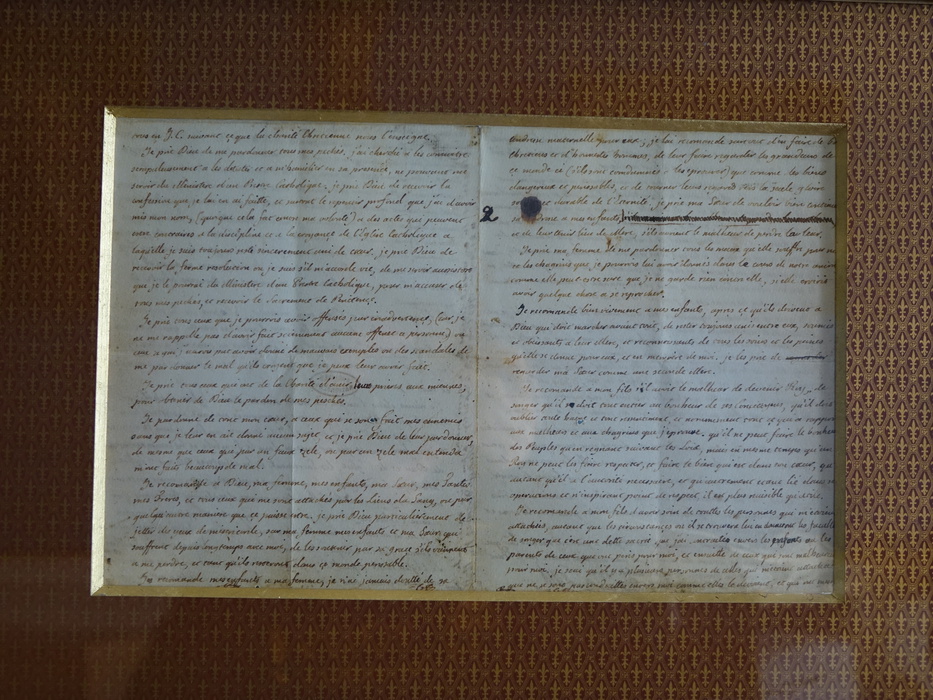 crus en J.C. suivant ce que la charité Chretienne nous l'enseigne.
Je prie Dieu de me pardonner tous mes pechés, j'ai cherché a les connoitre
scrupuleusement a les detester et a m'humilier en sa presence, ne pouvant me
servir du Ministere d'un Prêtre Catholique, je prie Dieu de recevoir la
confession que je lui en ai faitte, et surtout le repentir profond que j'ai d'avoir
mis mon nom, (quoique cela fut contre ma volonté) a des actes qui peuvent
etre contraires a la discipline et a la croyance de l'Eglise Catholique a
laquelle je suis toujours resté sincerement uni de cœur. je prie Dieu de
recevoir la ferme resolution ou je suis s'il m'accorde vie, de me servir aussitot
que je le pourrai du Ministere d'un Prêtre Catholique, pour m'accuser de
tous mes pechés, et recevoir le Sacrement de Penitence.
Je prie tous ceux que je pourrois avoir offensés par inadvertence, (car je
ne me rappelle pas d'avoir fait sciemment aucune offense a personne) ou
ceux a qui j'aurois put avoir donné de mauvais exemples ou des scandales de
me pardonner le mal qu'ils croyent que je peux leur avoir fait.
Je prie tous ceux qui ont de la Charité d'unir leurs prieres aux miennes,
pour obtenir de Dieu le pardon de mes pechés.
Je pardonne de tout mon cœur, a ceux qui se sont fait mes ennemis
sans que je leur en aie donné aucun sujet et je prie Dieu de leur pardonner,
de meme que ceux qui par un faux zele, ou par un zele mal entendu
m'ont faits beaucoup de mal.
Je recommande a Dieu, ma femme, mes enfants, ma Sœur, mes Tantes
mes Freres, et tous ceux qui me sont attachés par les Liens du Sang, ou par
quelque autre maniere que ce puisse etre. je prie Dieu particulierement de
jetter des yeux de misericorde, sur ma femme mes enfants et ma Sœur qui
souffrent depuis longtemps avec moi, de les soutenir par sa grace s'ils viennent
a me perdre, et tant qu'ils resteront dans ce monde perissable.
Je recommande mes enfants a ma femme, je n'ai jamais douté de sa
2
tendresse maternelle pour eux; je lui recommande surtout d'en faire de bons
Chretiens et d'honnetes hommes, de leur faire regarder les grandeurs de
ce monde ci (s'ils sont condamnés a les eprouver) que comme des biens
dangereux et perissables, et de tourner leurs regards vers la seule gloire
et durable de l'Eternité. je prie ma Sœur de vouloir bien continuer
a mes enfants,
et de leur tenir lieu de Mere, s'ils avoient le malheur de perdre la leur.
Je prie ma femme de me pardonner tous les maux qu'elle souffre pour moi
et les chagrins que je pourrois lui avoir donnés dans le cours de notre union
comme elle peut etre sure que je ne garde rien contre elle, si elle croioit
avoir quelque chose a se reprocher.
Je recommande bien vivement a mes enfants, apres ce qu'ils doivent a
Dieu qui doit marcher avant tout, de rester toujours unis entre eux, soumis
et obeissants a leur Mere, et reconnoissants de tous les soins et les peines
qu'elle se donne pour eux, et en memoire de moi. je les prie de
regarder ma Sœur comme une seconde Mere.
Je recommande a mon fils s'il avoit le malheur de devenir Roy, de
songer qu'il se doit tout entier au bonheur de ses Concitoyens, qu'il doit
oublier toute haine et tout ressentiment, et nommement tout ce qui a rapport
aux malheurs et aux chagrins que j'eprouve. qu'il ne peut faire le bonheur
des Peuples qu'en regnant suivant les Loix, mais en meme temps qu'un
Roy ne peut les faire respecter, et faire le bien qui est dans son cœur, qu'
autant qu'il a l'autorité necessaire, et qu'autrement etant lié dans ses
operations et n'inspirant point de respect, il est plus nuisible qu'utile.
Je recommande a mon fils d'avoir soin de toutes les personnes qui m'etoient
attachées, autant que les circonstances ou il se trouvera lui en donneront les facultés
de songer que c'est une dette sacrée que j'ai contractée envers les enfants ou les
parents de ceux qui ont peris pour moi, et ensuitte de ceux qui sont malheureux
pour moi. je sçai qu'il y a plusieurs personnes de celles qui m'etoient attachées